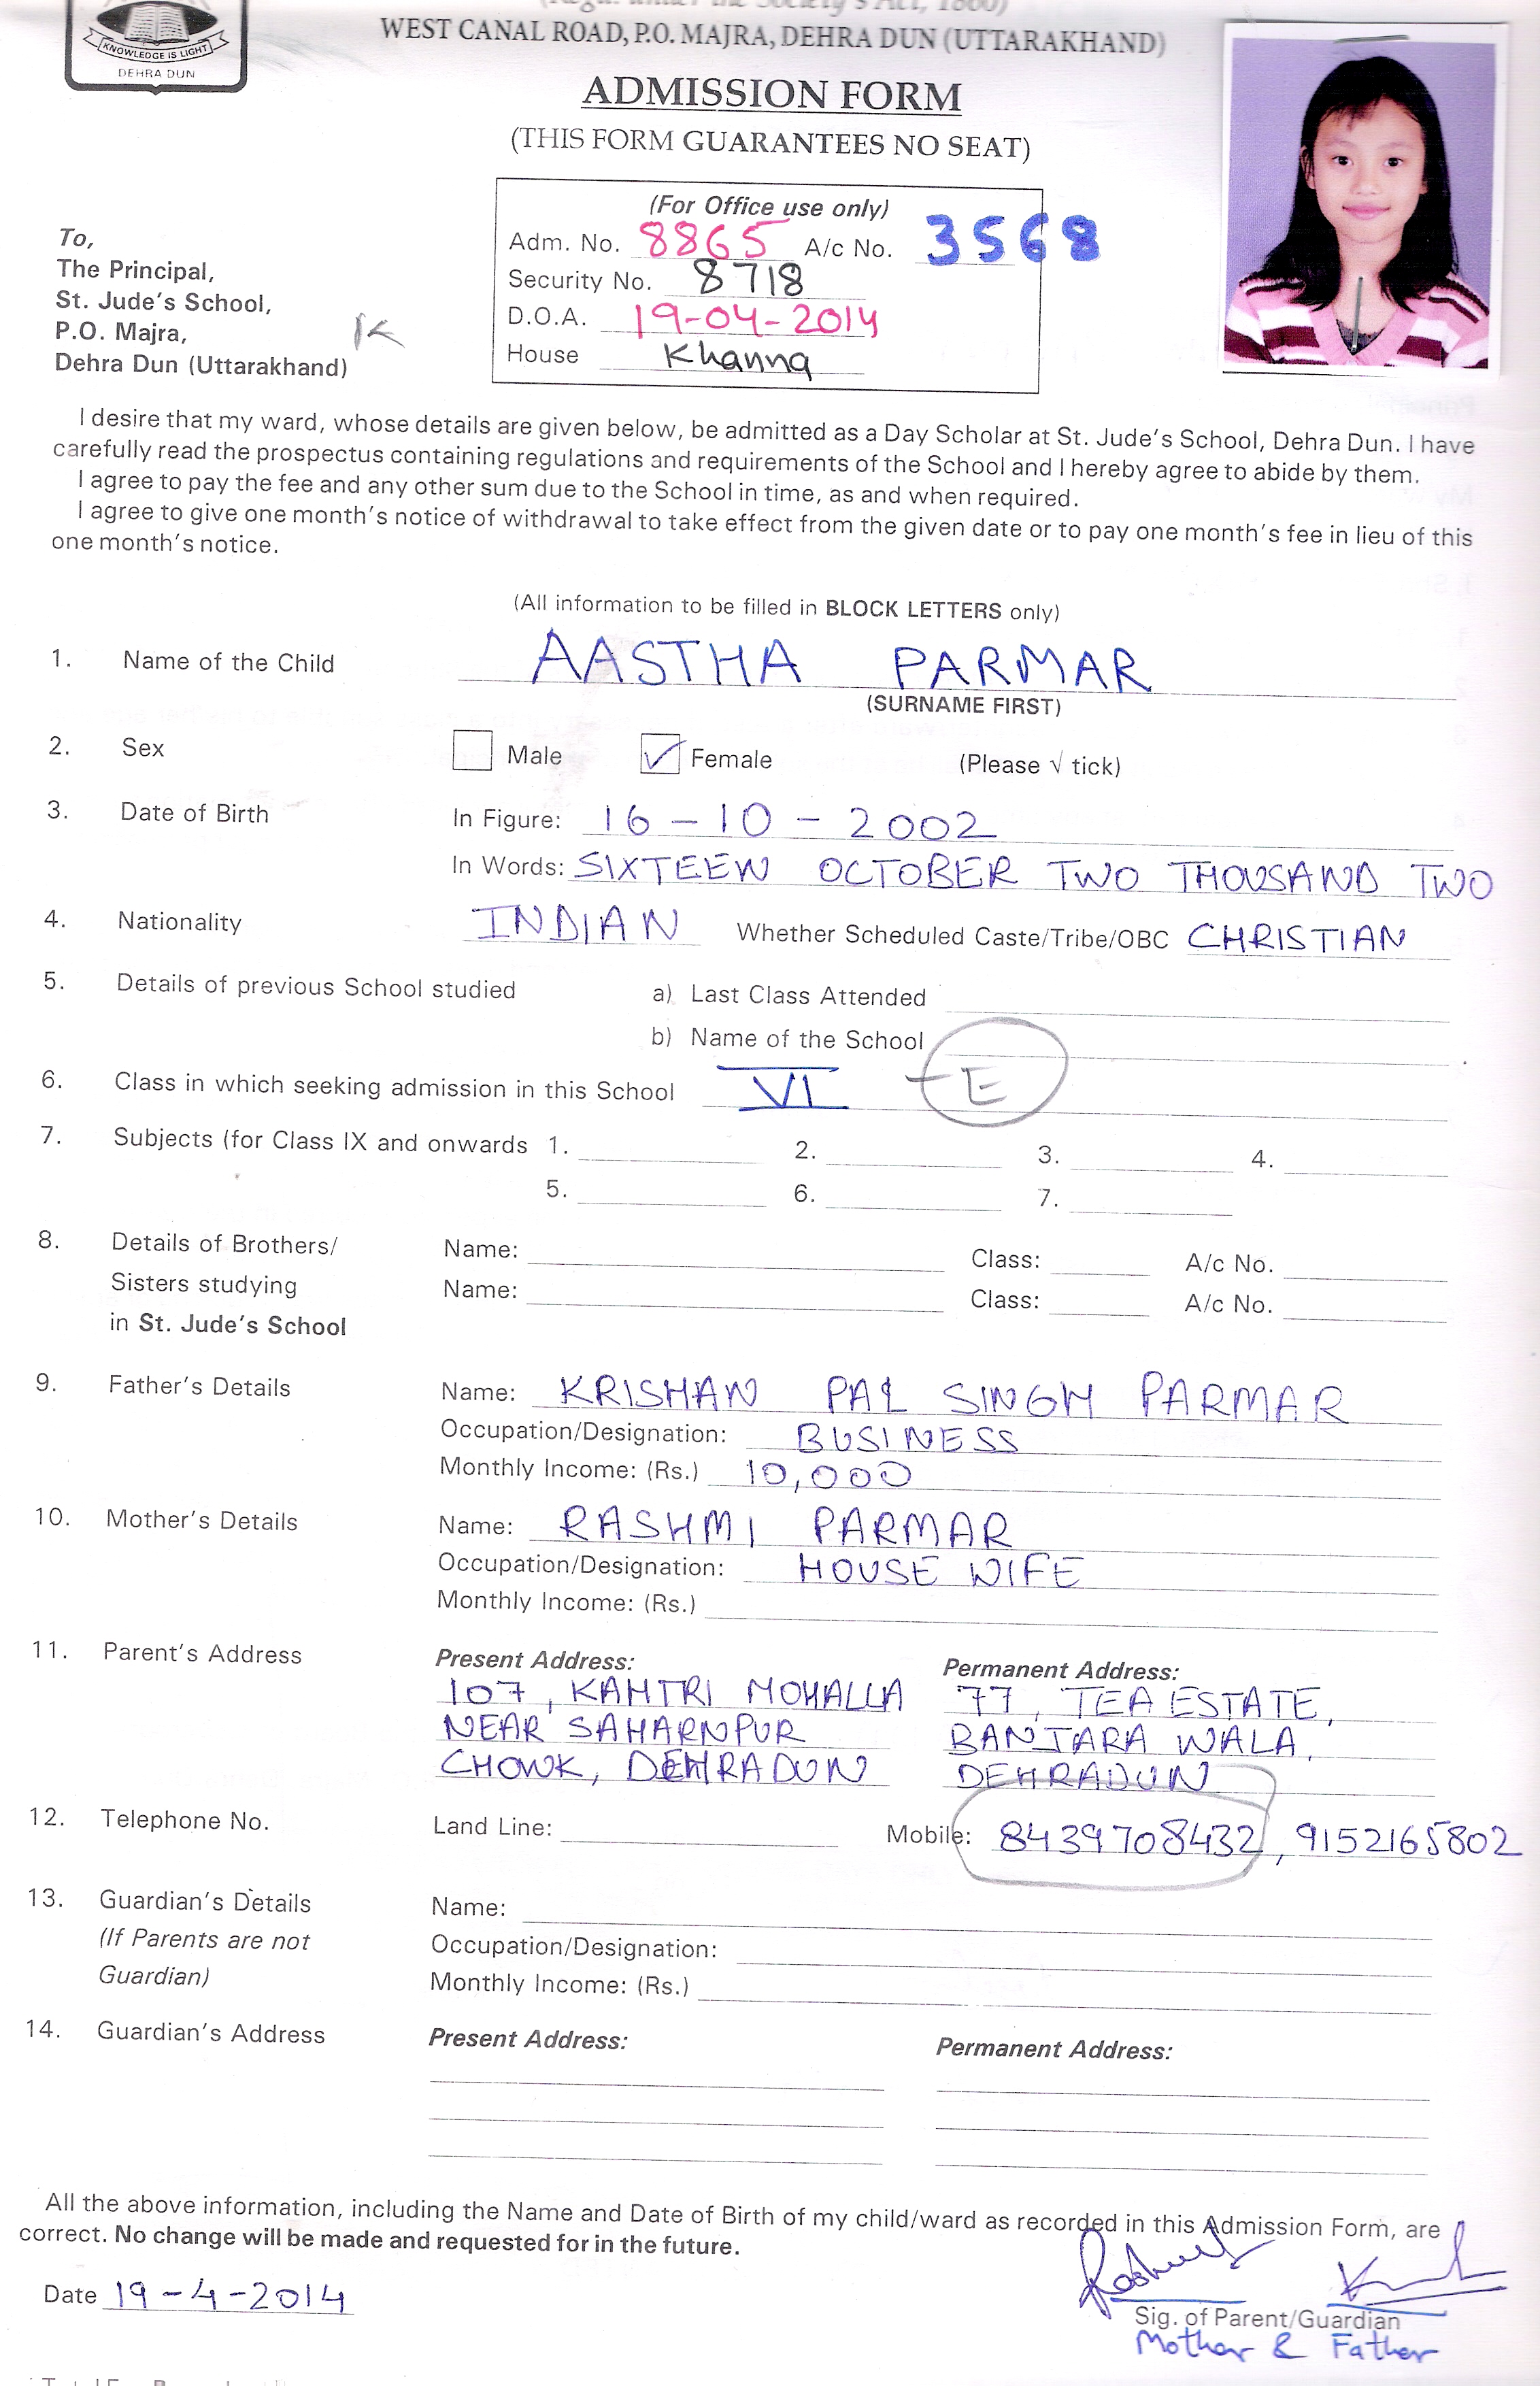 (Regd. under the Society's Act, 1860)
WEST CANAL ROAD, P.O. MAJRA, DEHRA DUN (UTTARAKHAND)
KNOWLEDGE IS LIGHT
DEHRA DUN
ADMISSION FORM
(THIS FORM GUARANTEES NO SEAT)
(For Office use only)
Adm. No. 8865 A/c No. 3568
Security No. 8718
D.O.A. 19-04-2014
House Khanna
To,
The Principal,
St. Jude's School,
P.O. Majra,
Dehra Dun (Uttarakhand)
I desire that my ward, whose details are given below, be admitted as a Day Scholar at St. Jude's School, Dehra Dun. I have
carefully read the prospectus containing regulations and requirements of the School and I hereby agree to abide by them.
I agree to pay the fee and any other sum due to the School in time, as and when required.
I agree to give one month's notice of withdrawal to take effect from the given date or to pay one month's fee in lieu of this
one month's notice.
(All information to be filled in BLOCK LETTERS only)
1. Name of the Child AASTHA PARMAR
(SURNAME FIRST)
2. Sex Male ✓ Female (Please √ tick)
3. Date of Birth In Figure: 16 - 10 - 2002
In Words: SIXTEEN OCTOBER TWO THOUSAND TWO
4. Nationality INDIAN Whether Scheduled Caste/Tribe/OBC CHRISTIAN
5. Details of previous School studied a) Last Class Attended
b) Name of the School
6. Class in which seeking admission in this School VI - E
7. Subjects (for Class IX and onwards 1. 2. 3. 4.
5. 6. 7.
8. Details of Brothers/ Name: Class: A/c No.
Sisters studying Name: Class: A/c No.
in St. Jude's School
9. Father's Details Name: KRISHAN PAL SINGH PARMAR
Occupation/Designation: BUSINESS
Monthly Income: (Rs.) 10,000
10. Mother's Details Name: RASHMI PARMAR
Occupation/Designation: HOUSE WIFE
Monthly Income: (Rs.)
11. Parent's Address Present Address: Permanent Address:
107, KAHTRI MOHALLA 77, TEA ESTATE,
NEAR SAHARNPUR BANJARA WALA,
CHOWK, DEHRADUN DEHRADUN
12. Telephone No. Land Line: Mobile: 8439708432, 9152165802
13. Guardian's Details Name:
(If Parents are not Occupation/Designation:
Guardian) Monthly Income: (Rs.)
14. Guardian's Address Present Address: Permanent Address:
All the above information, including the Name and Date of Birth of my child/ward as recorded in this Admission Form, are
correct. No change will be made and requested for in the future.
Date 19-4-2014
Sig. of Parent/Guardian
Mother & Father